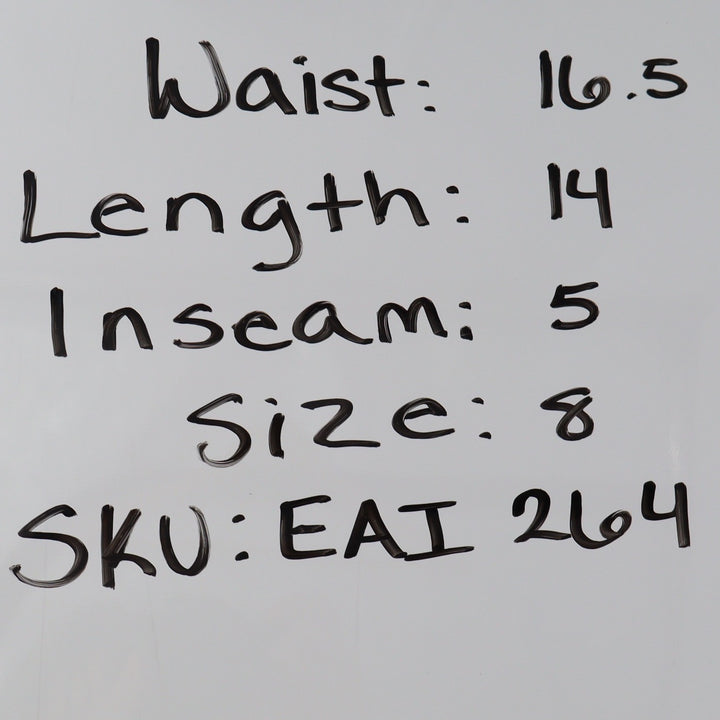 Waist: 16.5
Length: 14
Inseam: 5
Size: 8
SKU: EAI 264